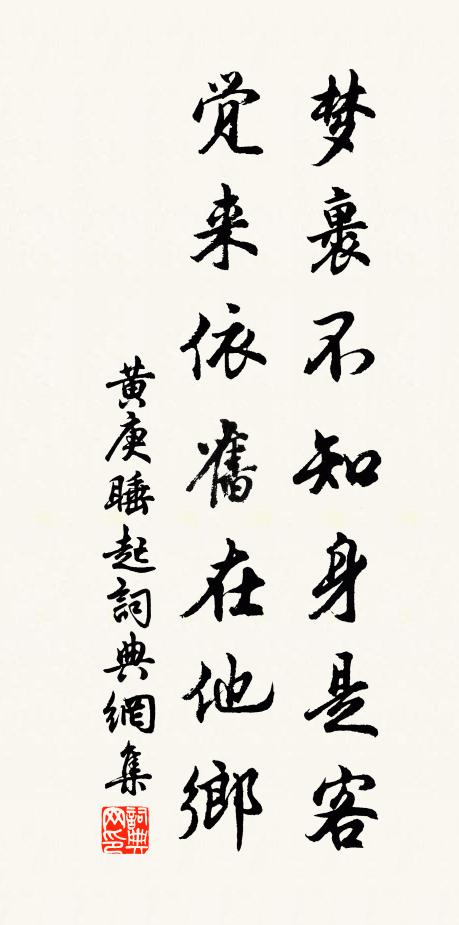 梦裏不知身是客
覚来依舊在他鄉
黄庚睡起詞典網集
詞典网印